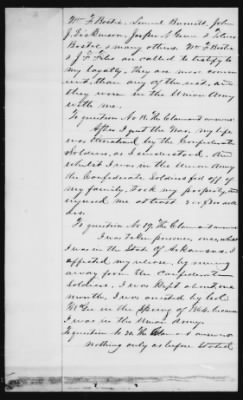 Wm F Bostic, Samuel Burnett, John
J. Dickinson, Jasper N Cume &
Bostic & many others. Wm F Bostic
& J. F. Files are called to testify to
my loyalty. they are most conven
ient, than any of the rest, and
they were in the Union Army
with me.
To question No 18. The Claimant answers
After I quit the War, my life
was threatened by the Confederate
Soldiers, as I understood. And
whilst I was in the Union Army
the Confederate Soldiers fed off of
my family, took my property, &
injured me at least
To question No 19. The Claimant answers
I was taken prisoner, once, when
I was in the State of Arkansas. I
affected my release, by running
away from the Confederate
Soldiers. I was kept about one
month. I was arrested by Col
McGee in the Spring of 1864, because
I was in the Union Army.
To question No 20. The Claimant answers
Nothing only as before stated.